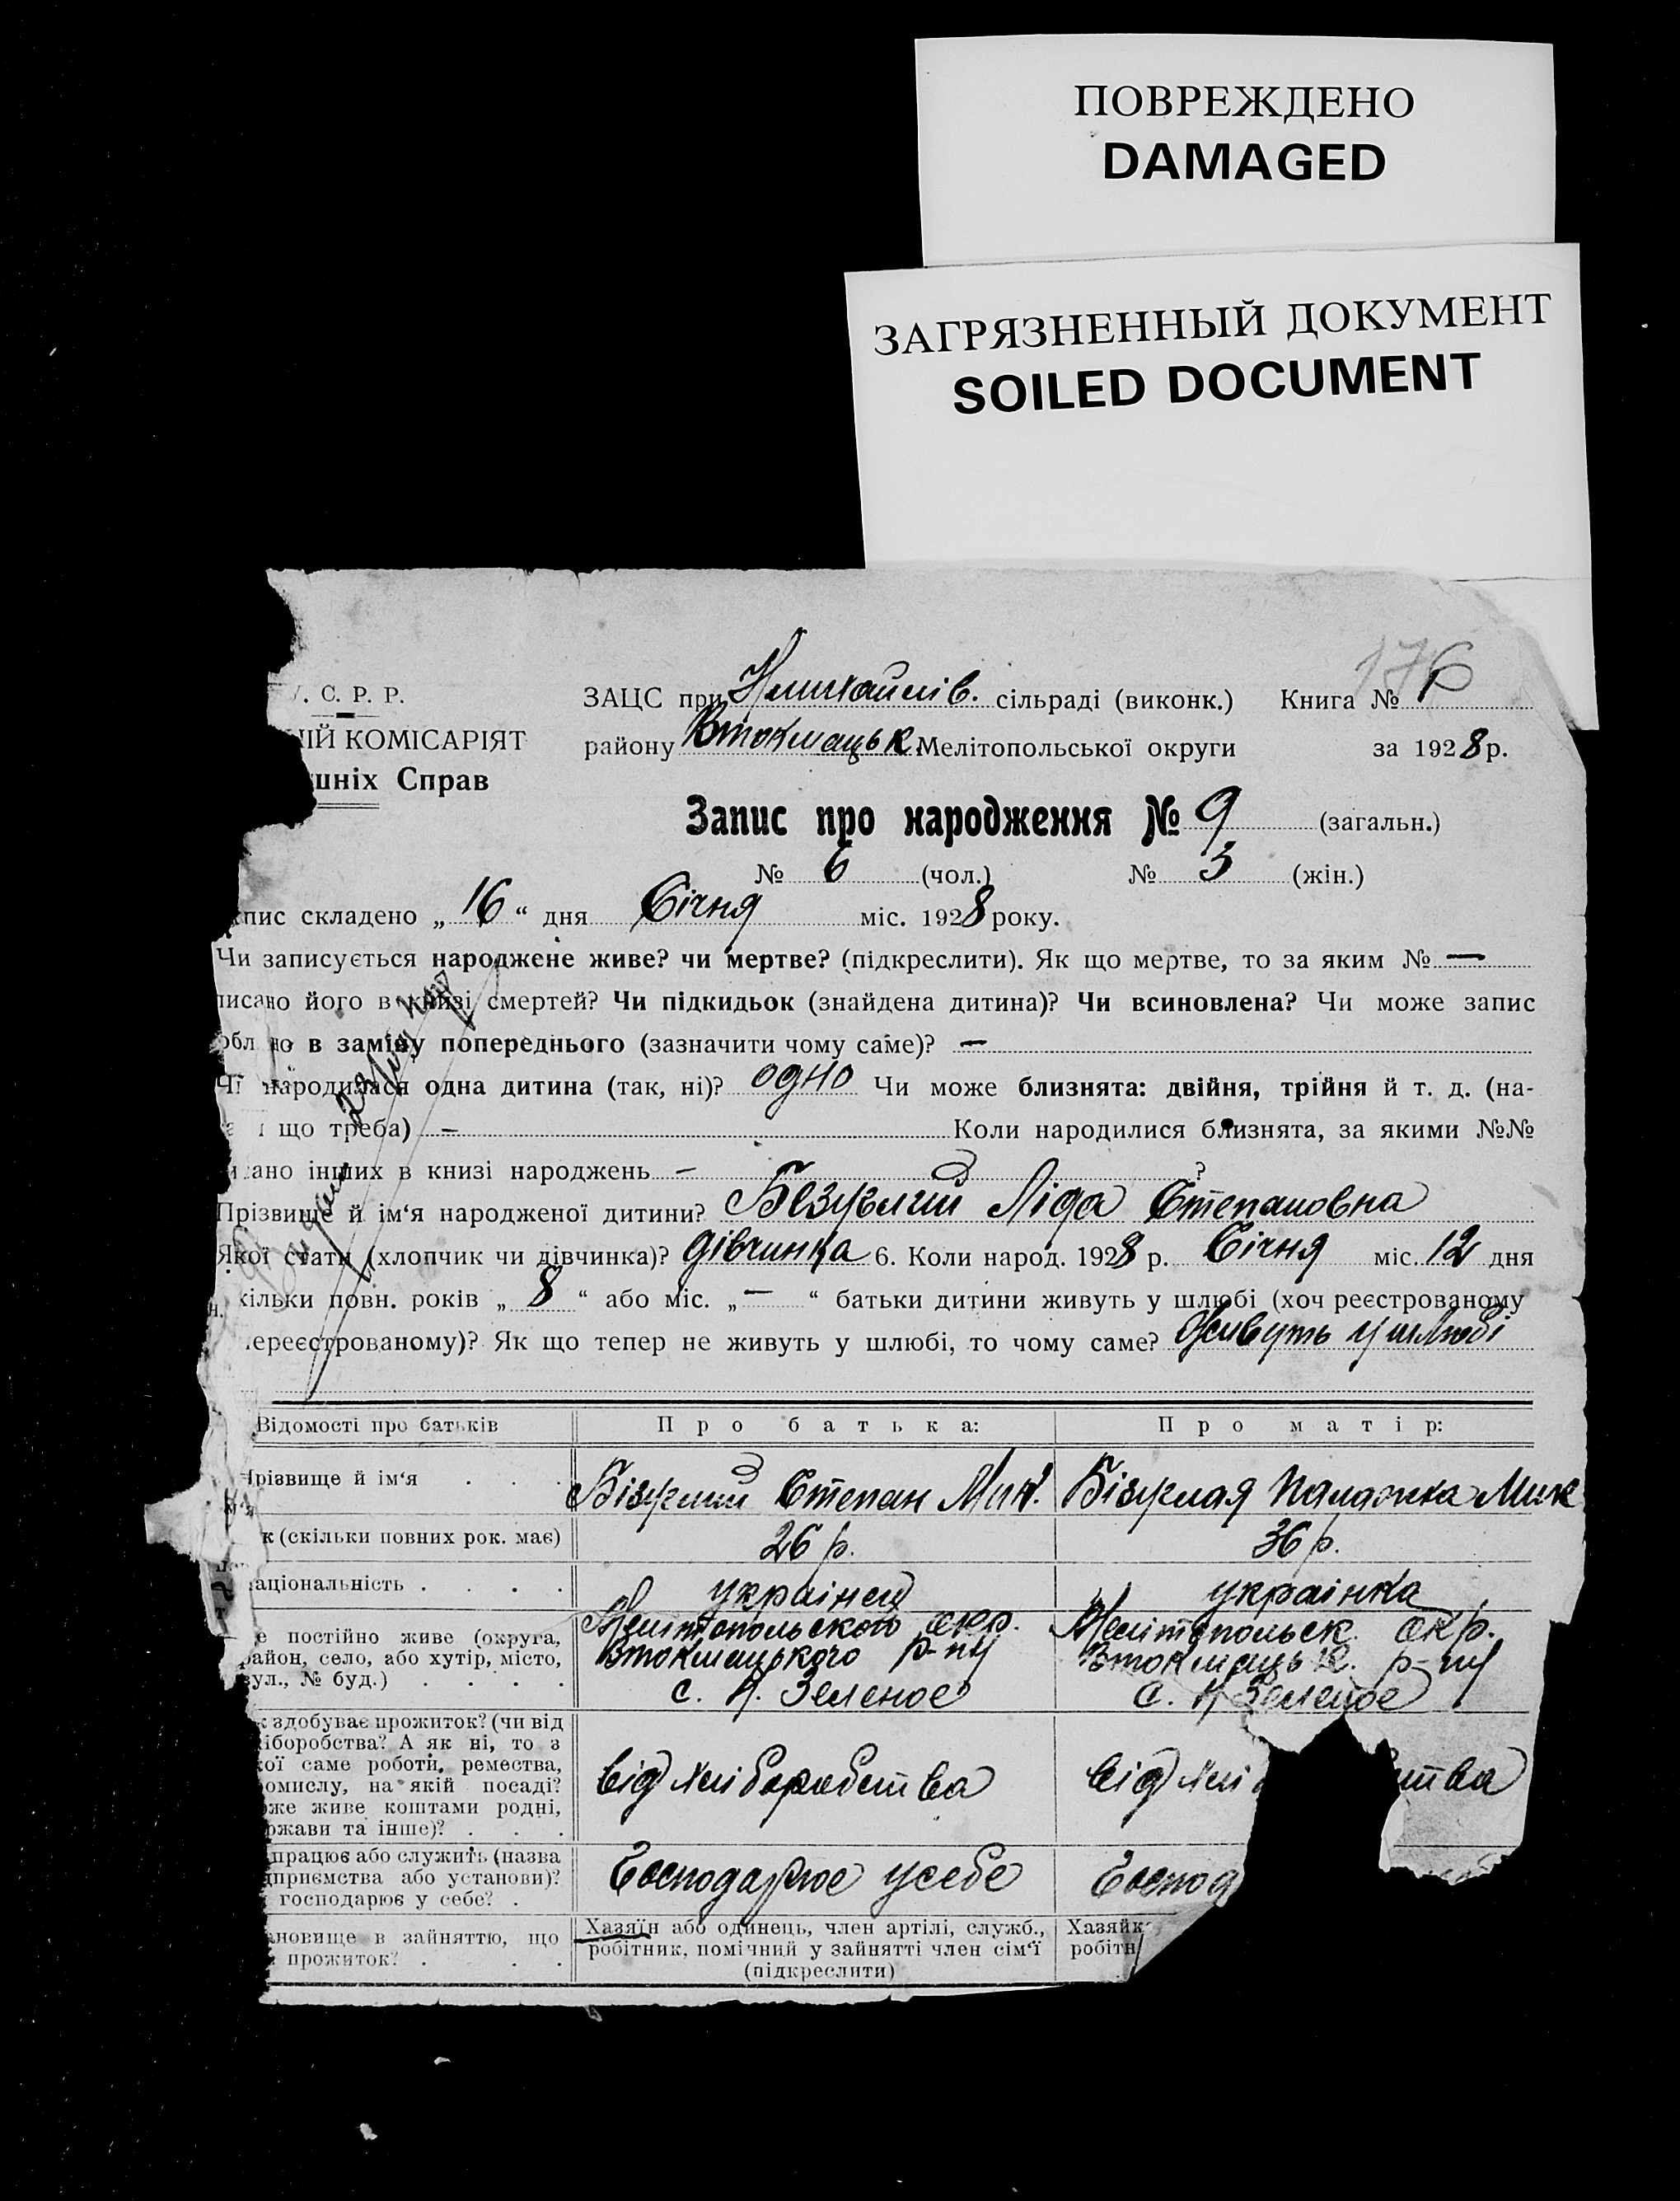 ПОВРЕЖДЕНО
DAMAGED
ЗАГРЯЗНЕННЫЙ ДОКУМЕНТ
SOILED DOCUMENT
176
. С. Р. Р.
ЗАЦС при Нмихайлів. сільраді (виконк.) Книга № 1
ІЙ КОМІСАРІЯТ
району Втокмацьк. Мелітопольської округи за 1928 р.
шніх Справ
Запис про народження № 9 (загальн.)
№ 6 (чол.) № 3 (жін.)
пис складено „16“ дня Січня міс. 1928 року.
Чи записується народжене живе? чи мертве? (підкреслити). Як що мертве, то за яким № —
писано його в книзі смертей? Чи підкидьок (знайдена дитина)? Чи всиновлена? Чи може запис
обл но в заміну попереднього (зазначити чому саме)? —
Чи народилася одна дитина (так, ні)? одно Чи може близнята: двійня, трійня й т. д. (на-
що треба) — Коли народилися близнята, за якими №№
исано інших в книзі народжень — ?
Прізвище й ім‘я народженої дитини? Безуглий Ліда Степановна
Якої стати (хлопчик чи дівчинка)? дівчинка 6. Коли народ. 1928 р. Січня міс. 12 дня
кільки повн. років „8“ або міс. „—“ батьки дитини живуть у шлюбі (хоч реєстрованому
ереєстрованому)? Як що тепер не живуть у шлюбі, то чому саме? Живуть у шлюбі
Відомості про батьків Про батька: Про матір:
Прізвище й ім‘я . . . Бізуглий Степан Мик. Бізуглая Палажка Мик
к (скільки повних рок. має) 26 р. 36 р.
аціональність . . . . українец українка
е постійно живе (округа,
район, село, або хутір, місто,
вул., № буд.) . . . .
Мелітопольского окр. Мелітопольск. окр.
Втокмацького р-ну Втокмацьк. р-ну
с. Н. Зеленое с. Н Зеленое
к здобуває прожиток? (чи від
іборобства? А як ні, то з
кої саме роботи, ремества,
омислу, на якій посаді?
оже живе коштами родні,
ржави та інше)? . . .
від хліборобства від хлі ства
працює або служить (назва
дприємства або установи)?
господарює у себе? .
Господарює усебе Господ
ановище в зайняттю, що
прожиток? . . .
Хазяїн або одинець, член артілі, служб.,
робітник, помічний у зайнятті член сім‘ї
(підкреслити)
Хазяйк
робітн